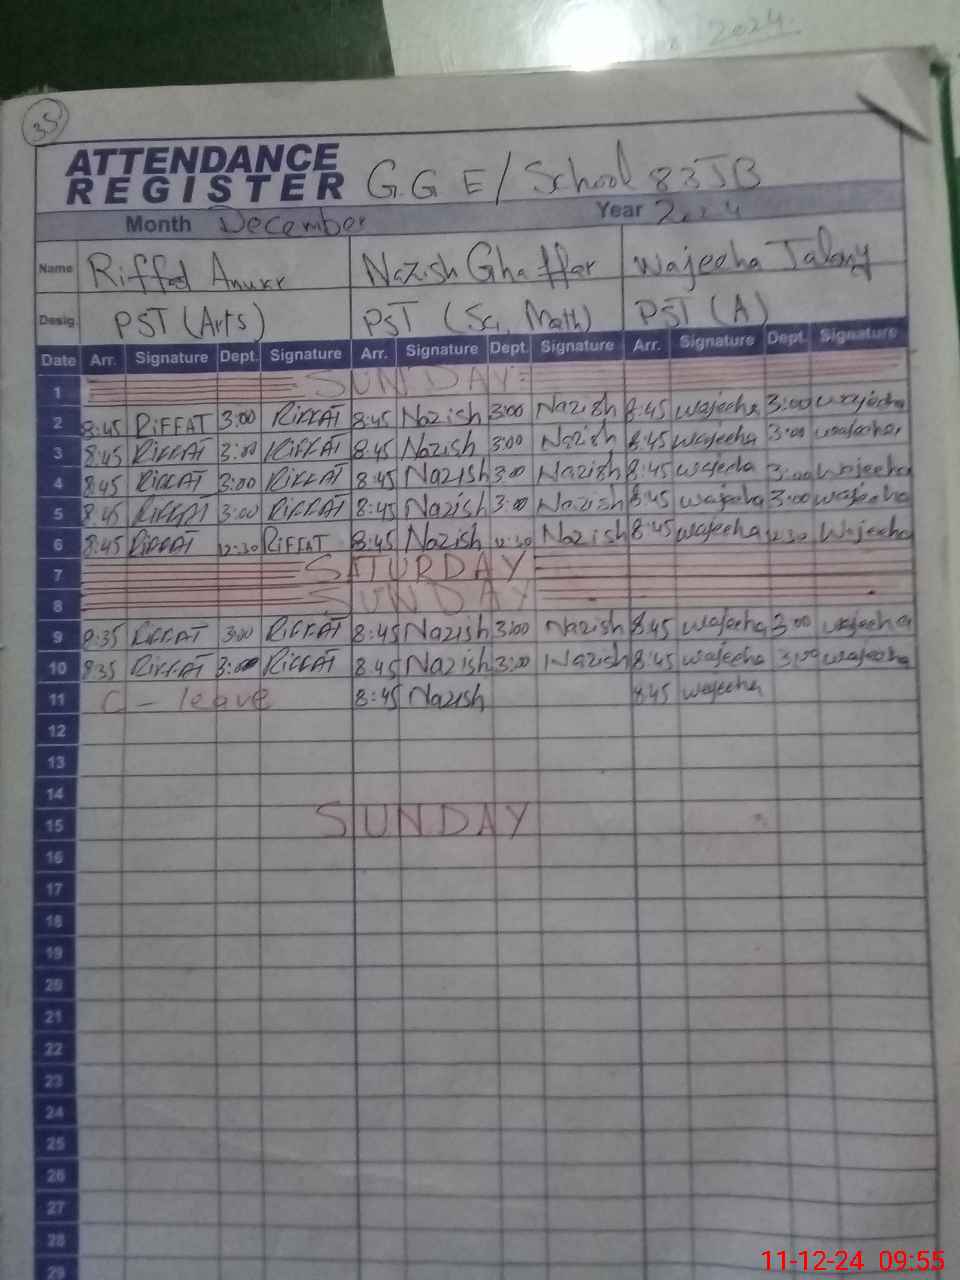 2024
35
ATTENDANCE
REGISTER G.G E/School 83JB
Month December Year 2024
Name Riffat Anwar Nazish Ghaffar Wajeeha
Desig. PST (Arts) PST (Sci, Math) PST (A)
Date Arr. Signature Dept. Signature Arr. Signature Dept. Signature Arr. Signature Dept. Signature
1 SUNDAY
2 8:45 RIFFAT 3:00 RIFFAT 8:45 Nazish 3:00 Nazish 8:45 wajeeha 3:00 wajeeha
3 8:45 RIFFAT 3:00 RIFFAT 8:45 Nazish 3:00 Nazish 8:45 wajeeha 3:00 wajeeha
4 8:45 RIFFAT 3:00 RIFFAT 8:45 Nazish 3:00 Nazish 8:45 wajeeha 3:00 wajeeha
5 8:45 RIFFAT 3:00 RIFFAT 8:45 Nazish 3:00 Nazish 8:45 wajeeha 3:00 wajeeha
6 8:45 RIFFAT 12:30 RIFFAT 8:45 Nazish 12:30 Nazish 8:45 wajeeha 12:30 Wajeeha
7 SATURDAY
8 SUNDAY
9 8:35 RIFFAT 3:00 RIFFAT 8:45 Nazish 3:00 Nazish 8:45 wajeeha 3:00 wajeeha
10 8:35 RIFFAT 3:00 RIFFAT 8:45 Nazish 3:00 Nazish 8:45 wajeeha 3:00 wajeeha
11 C - leave 8:45 Nazish 8:45 wajeeha
12
13
14
15 SUNDAY
16
17
18
19
20
21
22
23
24
25
26
27
28
29
11-12-24 09:55